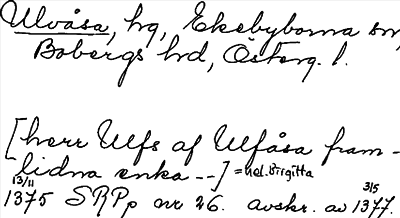 Ulvåsa, hg, Ekebyborna sn,
Bobergs hd, Österg. l.
[herr Ulfs af Ulfåsa fram-
lidna enka --] = hel. Birgitta
13/11 3/5
1375 SRPp nr 26. avskr. av 1377.